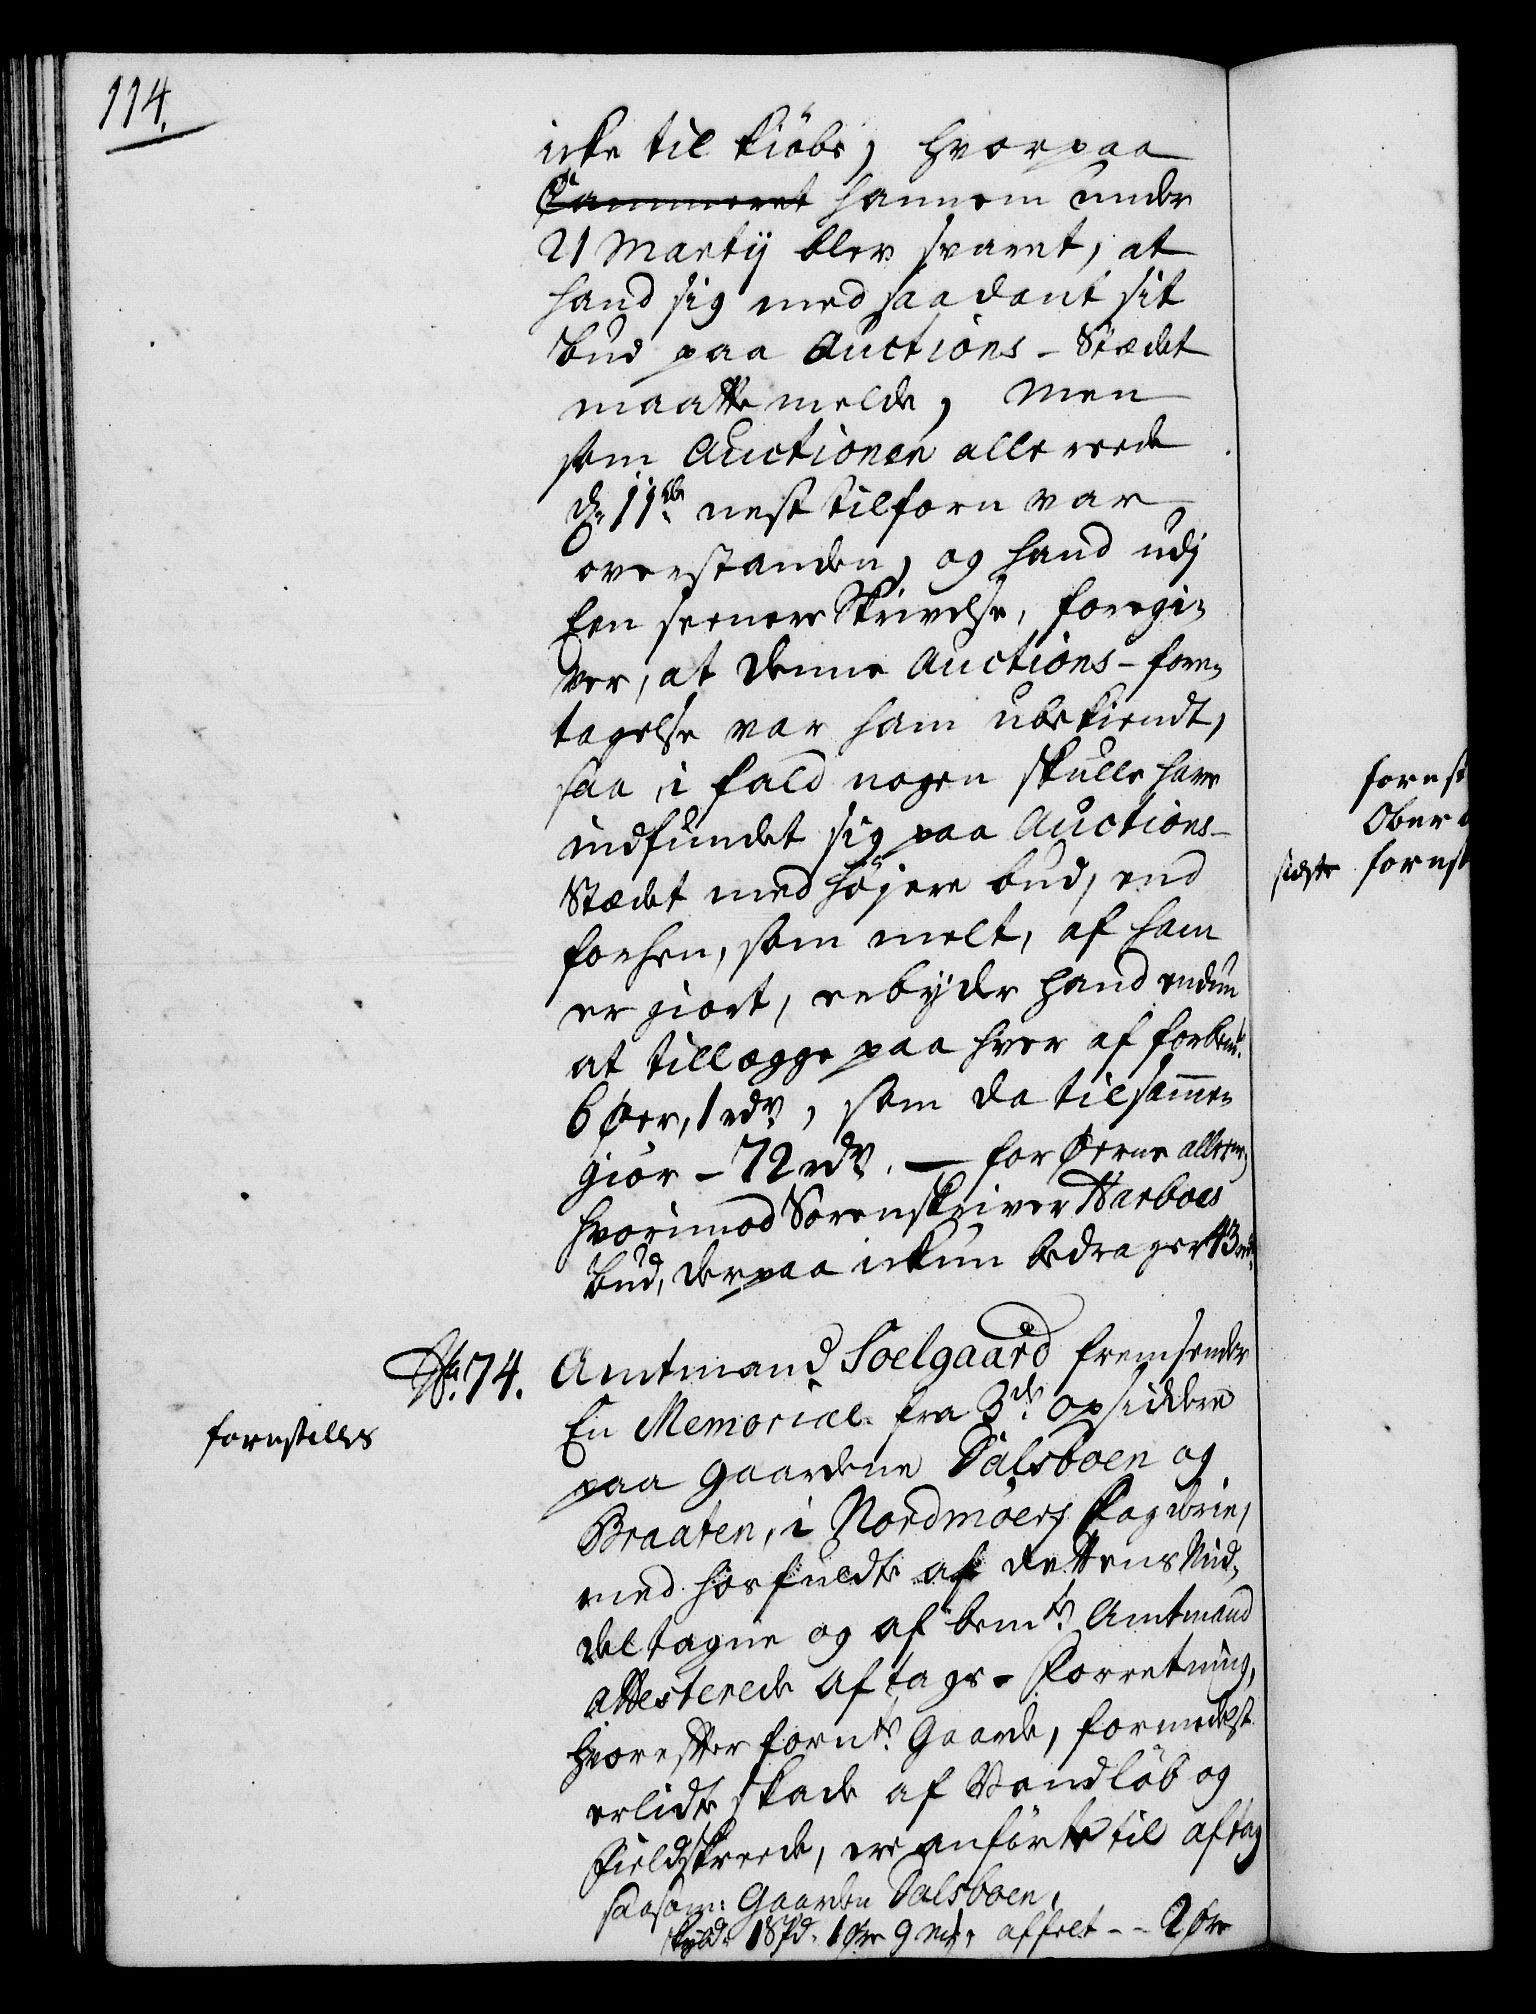 114.
icke til kiöbs, hvorpaa
Cammeret hannem under
21 Martij blev svaret, at
hand sig med saadant sit
bud paa Auctions-Stædet
maatte melde, men
som Auctionen allereede
d. 11te nest tilforn var
overstanden, og hand udj
een seenere Skrivelse, foregi-
ver, at denne Auctions-fore-
tagelse var ham ubekiendt,
saa, i fald nogen skulle have
indfundet sig paa Auctions-
Stædet med höjere bud, end
forhen, som melt, af ham
er giort, erbyder hand endnu
at tillægge paa hver af forbem.
6 Øer, 1 rdr, som da tilsammen
giör - 72 rdr. - for Øerne alleene,
hvorimod Sorenskriver Harboes
bud, derpaa ickun bedrager 43 rd.
No. 74. Amtmand Soelgaard fremsender
forestilles
En Memorial fra 3de opsiddere
paa gaardene Dalsboen og
Braaten, i Nordmöers Fogderie,
med hosfuldte af Rettens Mid-
del tagne og af bemte Amtmand
attesterede Aftags-Forretning,
hvorefter fornte Gaarde, formedelst
erlidte skade af Vandlöb og
Fieldskreede, ere anförte til aftag
saasom: Gaarden Dalsboen,
skyld 1 Spd. 1 Øre 9 mk, affelt -- 2 Øre
forest
Ober
sidste forest